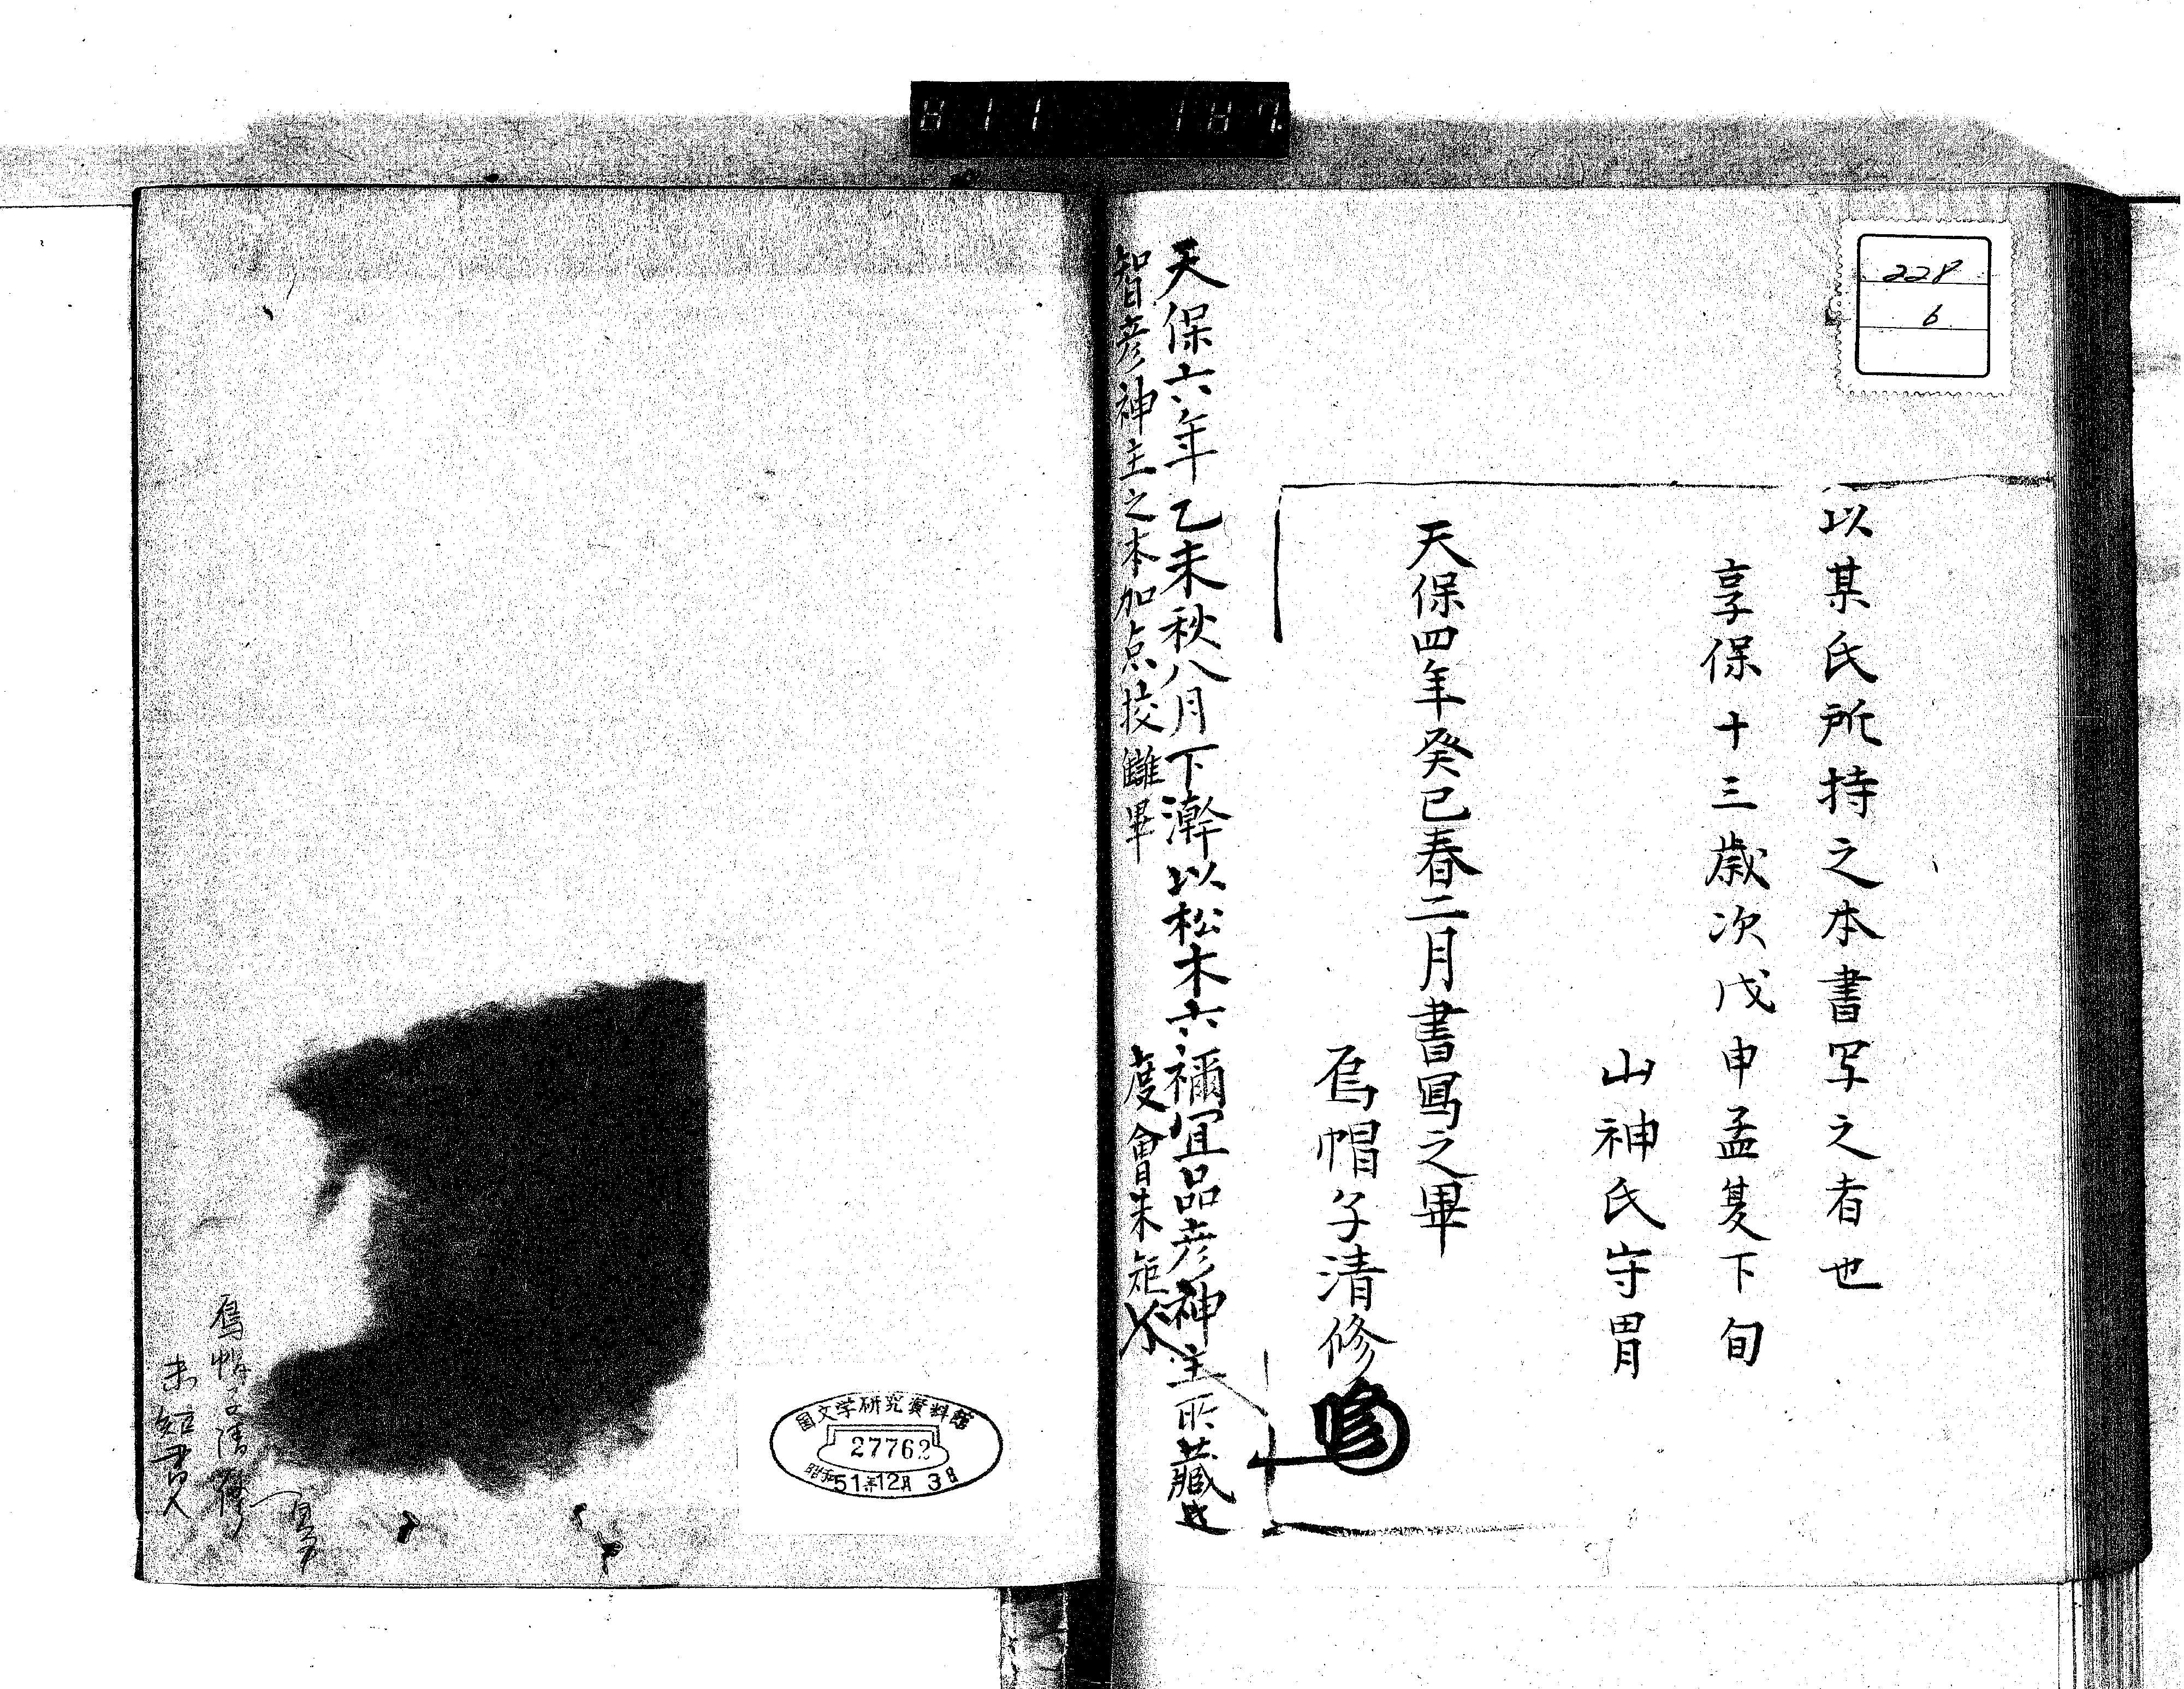 811 187
228
6
以某氏所持之本書写之者也
享保十三歳次戊申孟夏下旬
山神氏守胃
天保四年癸巳春二月書寫之畢
烏帽子清修
天保六年乙未秋八月下澣以松木六禰宜品彦神主所蔵
智彦神主之本加点挍讎畢
度會朱
国文学研究資料館
27762
昭和51年12月3日